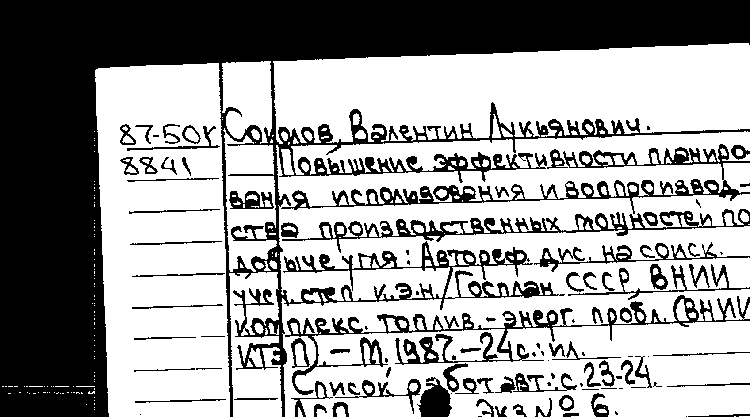 87-50к Соколов, Валентин Лукьянович.
8841 Повышение эффективности планиро-
вания использования и воспроизвод-
ства производственных мощностей по
добыче угля: Автореф. дис. на соиск.
учен. степ. к.э.н./Госплан СССР, ВНИИ
комплекс. топлив.-энерг. пробл. (ВНИИ
КТЭП). – М. 1987. – 24 с.: ил.
Список работ авт.: с. 23-24.
ДСП Экз № 6.